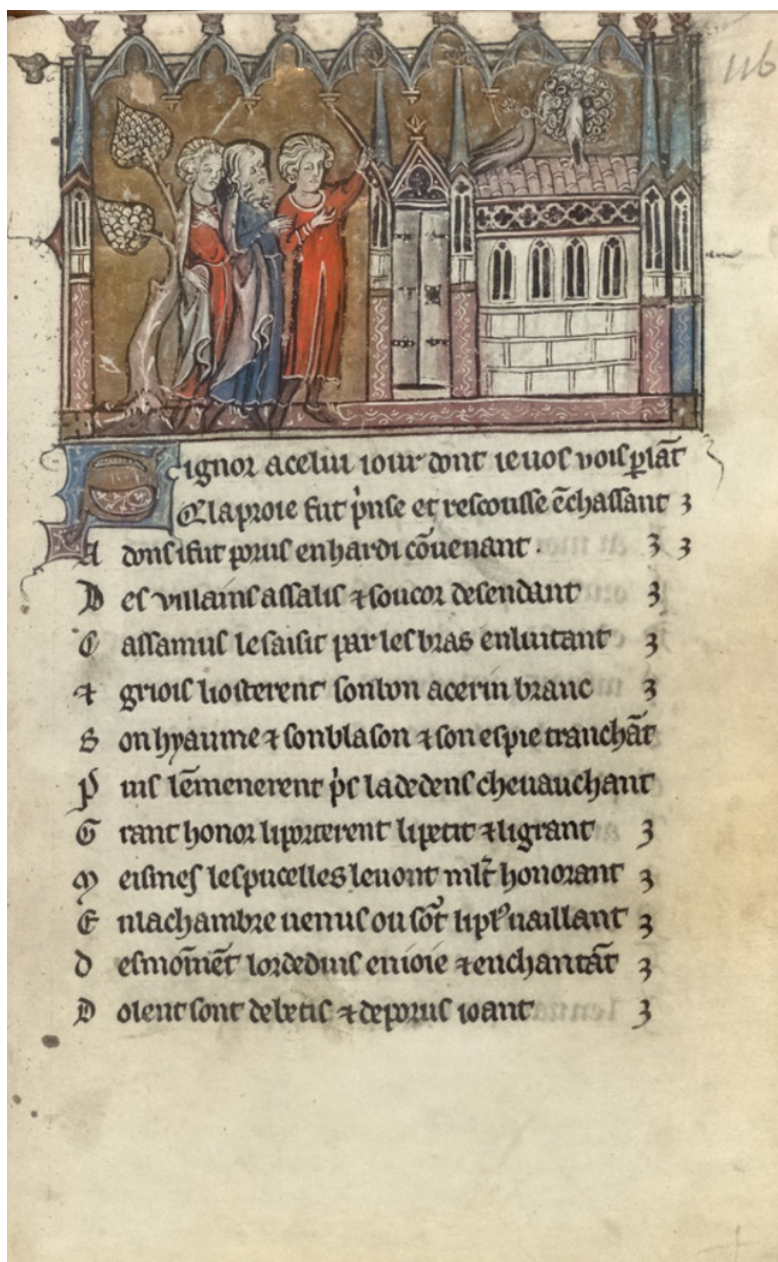 116
Signor a celui iour dont ie uos vois plāt
Q la proie fut p'nse et rescousse ēchassant
A dons i fut porus en hardi cōuenant .
D es villains assalis ⁊ soucor desendant
C assamus le saisit par les bras en luitant
⁊ griois li osterent son bon acerin branc
S on hyaume ⁊ son blason ⁊ son espie tranchāt
P uis lēmenerent p's la dedens cheuauchant
G rant honor li porterent li petit ⁊ li grant
M eismes les pucelles le uont mlt honorant
E n la chambre uenus ou sōt li pl' uaillant
D esmoinēt lor deduis en ioie ⁊ en chantāt
D olent sont de betis ⁊ de porus ioant